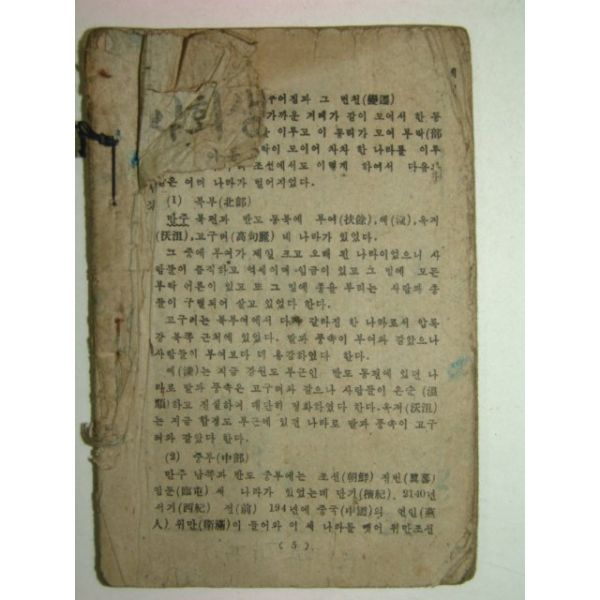 사회생
어짐과 그 변천(變遷)
가까운 겨레가 같이 모여서 한 동
을 이루고 이 동리가 모여 부락(部
락이 모이어 차차 한 나라를 이루
조선에서도 이렇게 하여서 다음과
같은 여러 나라가 벌어졌었다.
(1) 북부(北部)
만주 복판과 반도 동북에 부여(扶餘),예(濊),옥저
(沃沮),고구려(高句麗) 네 나라가 있었다.
그 중에 부여가 제일 크고 오래 된 나라이었으니 사
람들이 움직하고 억세이며 임금이 있고 그 밑에 모든
부락 어른이 있고 또 그 밑에 종을 부리는 사람과 종
들이 구별되어 살고 있었다 한다.
고구려는 북부여에서 다시 갈라진 한 나라로서 압록
강 북쪽 근처에 있었다. 말과 풍속이 부여와 같았으나
사람들이 부여보다 더 용감하였다 한다.
예(濊)는 지금 강원도 부근인 반도 동편에 있던 나
라로 말과 풍속은 고구려와 같으나 사람들이 온순(溫
順)하고 진실하여 대단히 평화하였다 한다.옥저(沃沮)
는 지금 함경도 부근에 있던 나라로 말과 풍속이 고구
려와 같았다 한다.
(2) 중부(中部)
만주 남쪽과 반도 중부에는 조선(朝鮮) 진번(眞蕃)
임둔(臨屯) 세 나라가 있었는데 단기(檀紀) 2140년
서기(西紀) 전(前) 194년에 중국(中國)의 연인(燕
人) 위만(衛滿)이 들어와 이 세 나라를 뺏어 위만조선
( 5 )